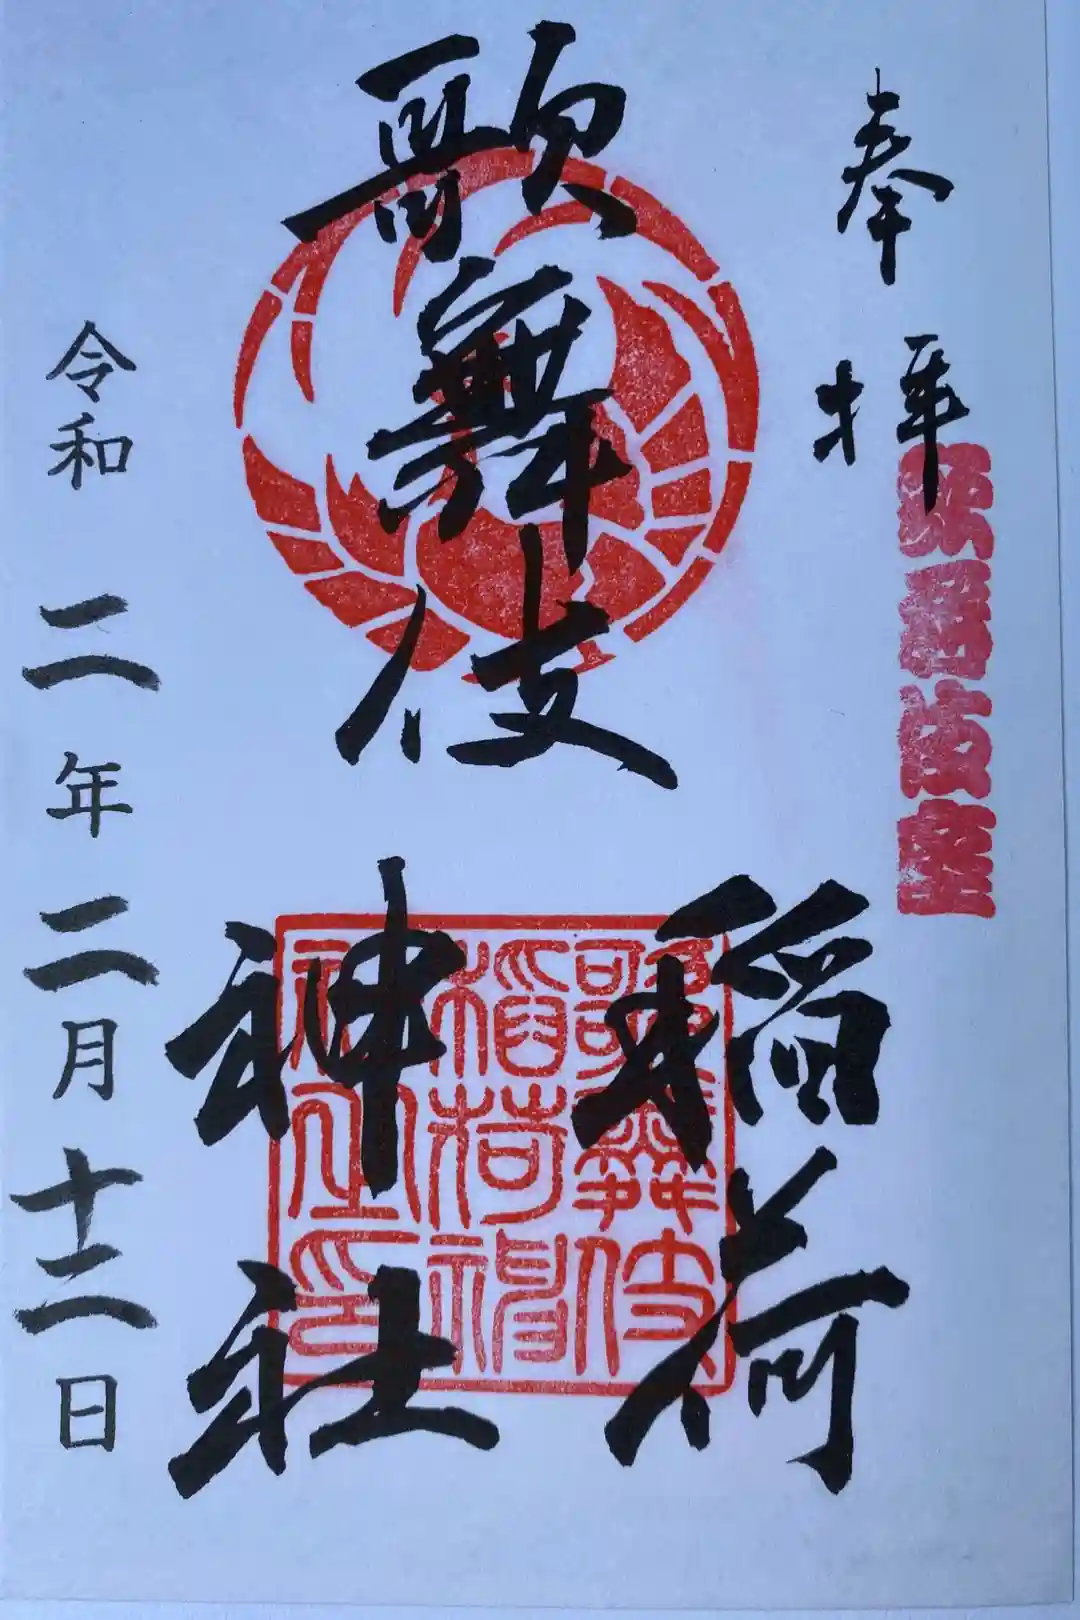 奉拝
歌舞伎座
歌舞伎
稲荷
神社
歌舞伎
稲荷神
社之印
令和二年二月十二日